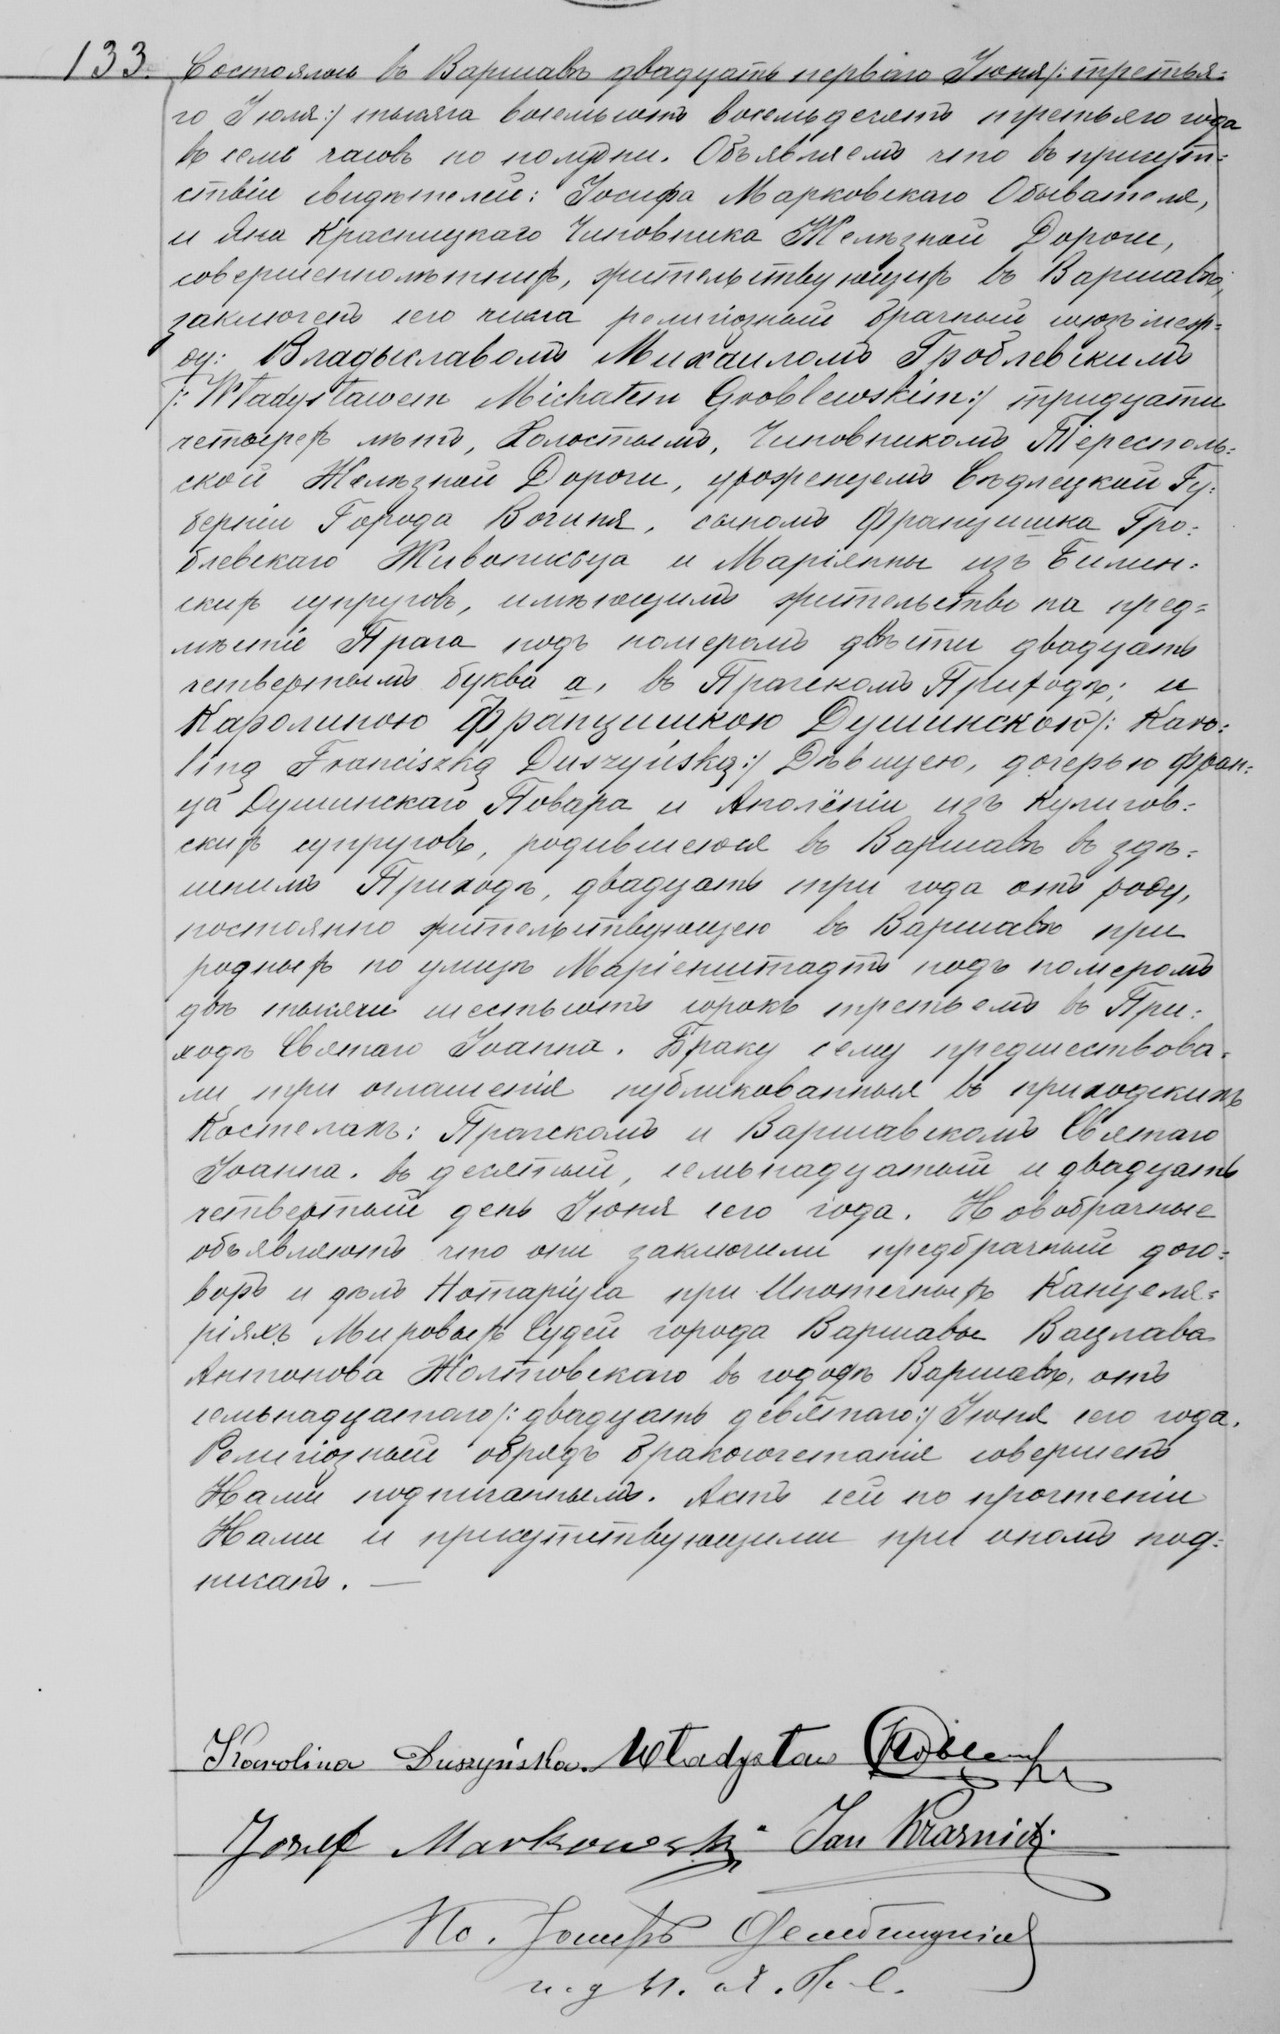 133. Состоялось въ Варшавѣ двадцать перваго Іюня /: третья-
го Іюля :/ тысяча восемьсотъ восемьдесятъ третьяго года
въ семь часовъ по полудни. Объявляемъ что въ присут-
ствіи свидѣтелей: Іосифа Марковскаго Обывателя,
и Яна Красницкаго Чиновника Желѣзной Дороги,
совершеннолѣтнихъ, жительствующихъ въ Варшавѣ,
заключенъ сего числа религіозный брачный союзъ меж-
ду: Владыславомъ Михаиломъ Гроблевскимъ
/: Władysławem Michałem Groblewskim :/ тридцати
четырехъ лѣтъ, Холостымъ, Чиновникомъ Тересполь-
ской Желѣзной Дороги, урожденцемъ Сѣдлецкой Гу-
берніи Города Вогиня, сыномъ Францишка Гро-
блевскаго Живописца и Маріянны изъ Билин-
скихъ супруговъ, имѣющимъ жительство на пред-
мѣстіе Прага подъ номеромъ двѣсти двадцать
четвертымъ буква а, въ Пражскомъ Приходѣ; и
Каролиною Францишкою Душинскою /: Karo-
liną Franciszką Duszyńską :/ Дѣвицею, дочерью Фран-
ца Душинскаго Повара и Аполёніи изъ Кулигов-
скихъ супруговъ, родившеюся въ Варшавѣ въ здѣ-
шнимъ Приходѣ, двадцать три года отъ роду,
постоянно жительствующею въ Варшавѣ при
родныхъ по улицѣ Маріенштадтъ подъ номеромъ
двѣ тысячи шестьсотъ сорокъ третьемъ въ При-
ходѣ Святаго Іоанна. Браку сему предшествова-
ли три оглашенія публикованныя въ приходскихъ
Костелахъ: Пражскомъ и Варшавскомъ Святаго
Іоанна. въ десятый, семьнадцатый и двадцать
четвертый день Іюня сего года. Новобрачные
объявляютъ что они заключили предбрачный дого-
воръ и дѣлъ Нотаріуса при Ипотечныхъ Канцеля-
ріяхъ Мировыхъ Судей города Варшавы Вацлава
Антонова Жолтовскаго въ гододѣ Варшавѣ, отъ
семьнадцатаго /: двадцать девятаго :/ Іюня сего года.
Религіозный обрядъ бракосочетанія совершенъ
Нами подписаннымъ. Актъ сей по прочтеніи
Нами и присутствующими при ономъ под-
писанъ. —
Karolina Duszyńska. Władysław
Józef Markowski Jan Krasnicki
Кс. Іосифъ